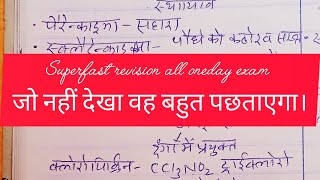 स्थायीत्व
• पैरेन्काइमा - सहारा
• स्क्लेरेन्काइमा - पौधे को कठोर व
Superfast revision all oneday exam
जो नहीं देखा वह बहुत पछताएगा।
रंगों में प्रयुक्त
क्लोरोपिक्रिन - CCl3NO2 ट्राईक्लोरो